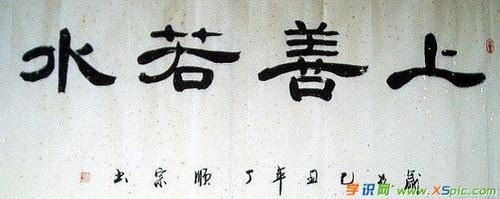 上善若水
歲己丑年丁順宗书
学识网 www.XSpic.com